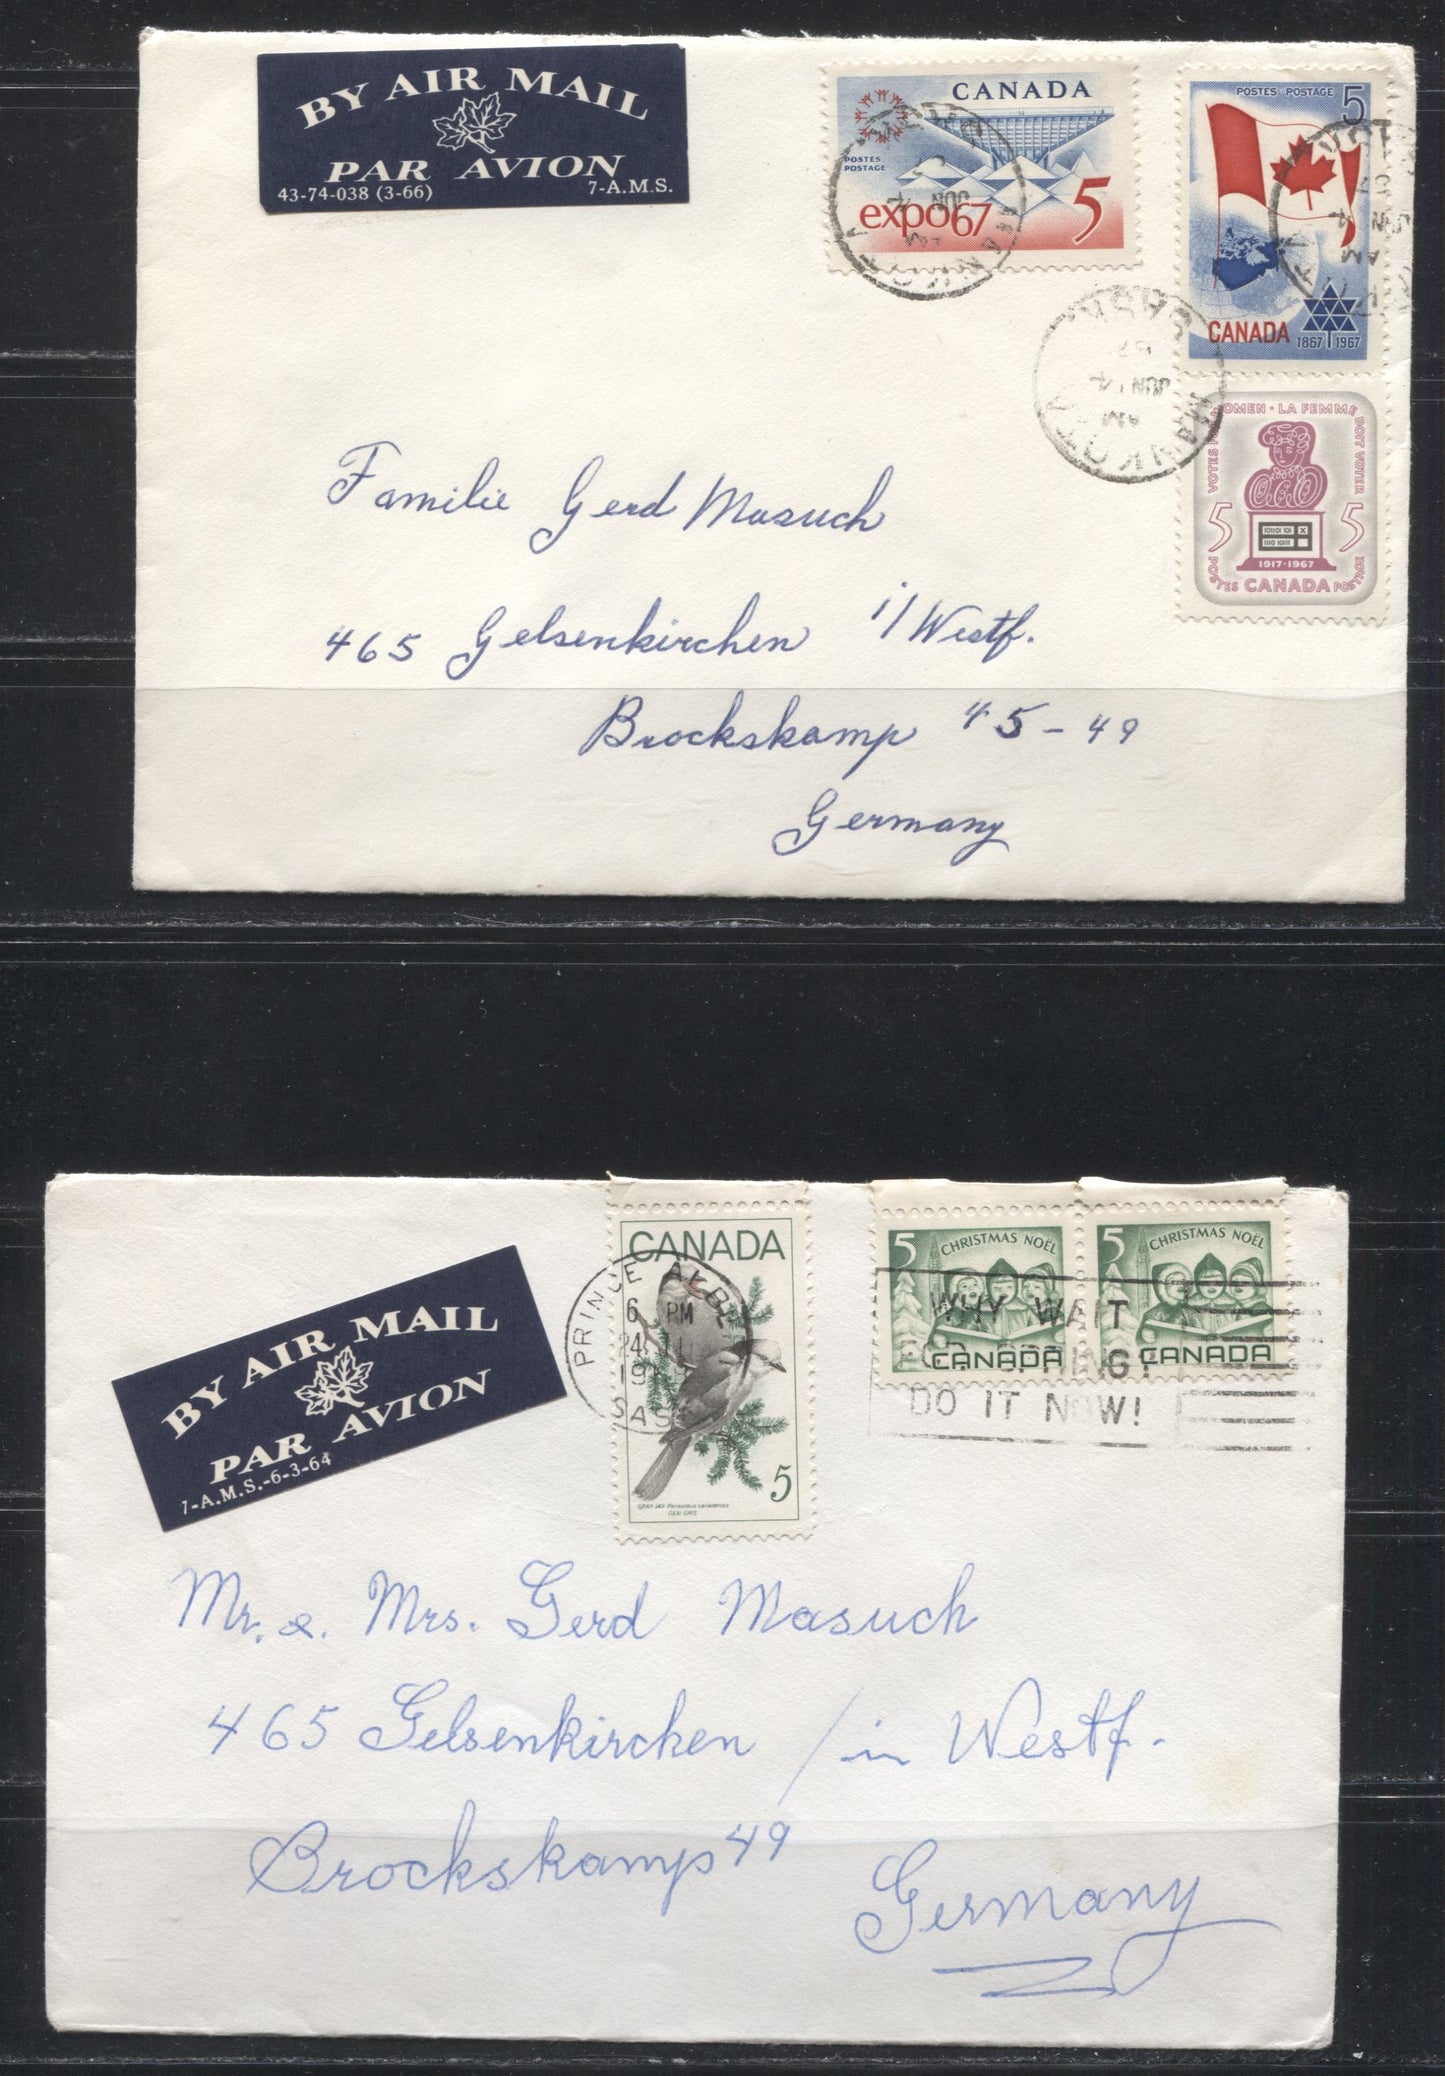 BY AIR MAIL
PAR AVION
43-74-038 (3-66) 7-A.M.S.
CANADA
POSTES
POSTAGE
expo67 5
POSTES POSTAGE 5
CANADA 1867 1967
MANKOTA
SASK
AM
JUN 14
67
WOMEN · LA FEMME DOIT VOTER
5 5
1917-1967
POSTES CANADA POSTAGE
Familie Gerd Masuch
465 Gelsenkirchen i/Westf.
Brockskamp 45-49
Germany
BY AIR MAIL
PAR AVION
7-A.M.S.-6-3-64
CANADA
5
GRAY JAY Perisoreus canadensis
GEAI GRIS
PRINCE ALBERT
6 PM
24
SASK
5 CHRISTMAS NOËL
CANADA
5 CHRISTMAS NOËL
CANADA
WHY WAIT
FOR SPRING!
DO IT NOW!
Mr. &. Mrs. Gerd Masuch
465 Gelsenkirchen / in Westf.
Brockskamp 49
Germany